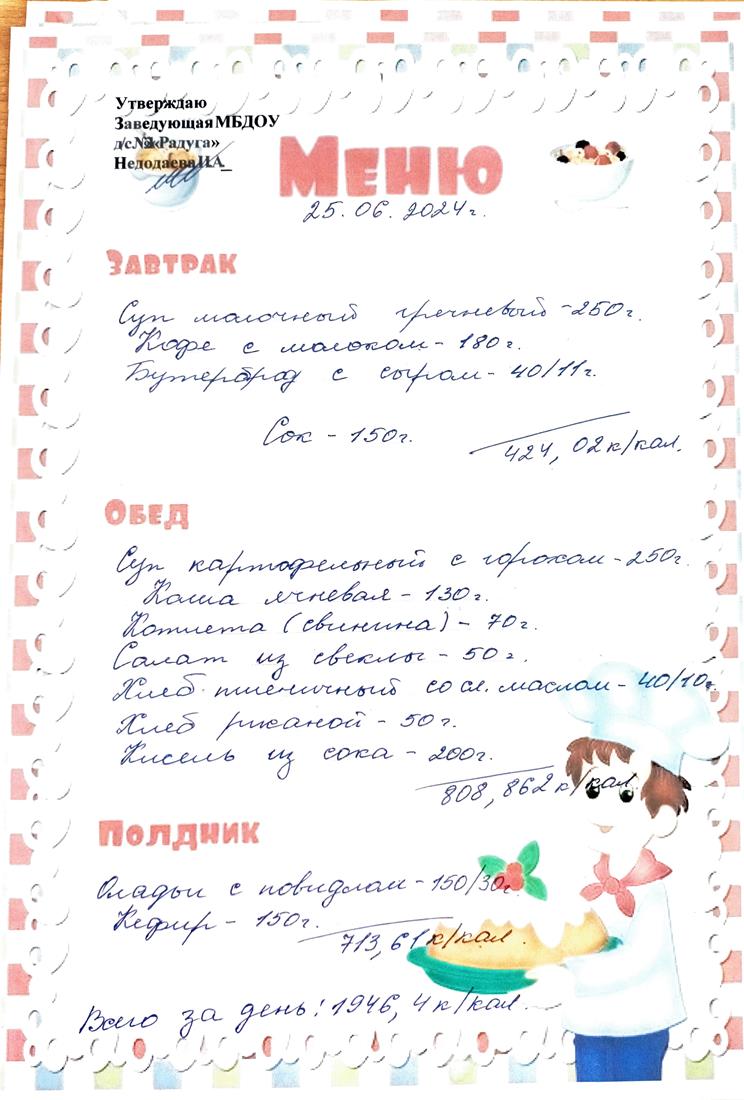 Утверждаю
Заведующая МБДОУ
«Радуга»
Недодаева И.А.
Меню
25. 06. 2024г.
Завтрак
Суп молочный гречневый - 250г.
Кофе с молоком - 180г.
Бутерброд с сыром - 40/11г.
Сок - 150г.
424, 02 к/кал.
Обед
Суп картофельный с горохом - 250г.
Каша ячневая - 130г.
Котлета (свинина) - 70г.
Салат из свеклы - 50г.
Хлеб пшеничный со сл. маслом - 40/10г.
Хлеб ржаной - 50г.
Кисель из сока - 200г.
808, 862 к/кал.
Полдник
Оладьи с повидлом - 150/30г.
Кефир - 150г.
713, 61 к/кал.
Всего за день: 1946, 4 к/кал.